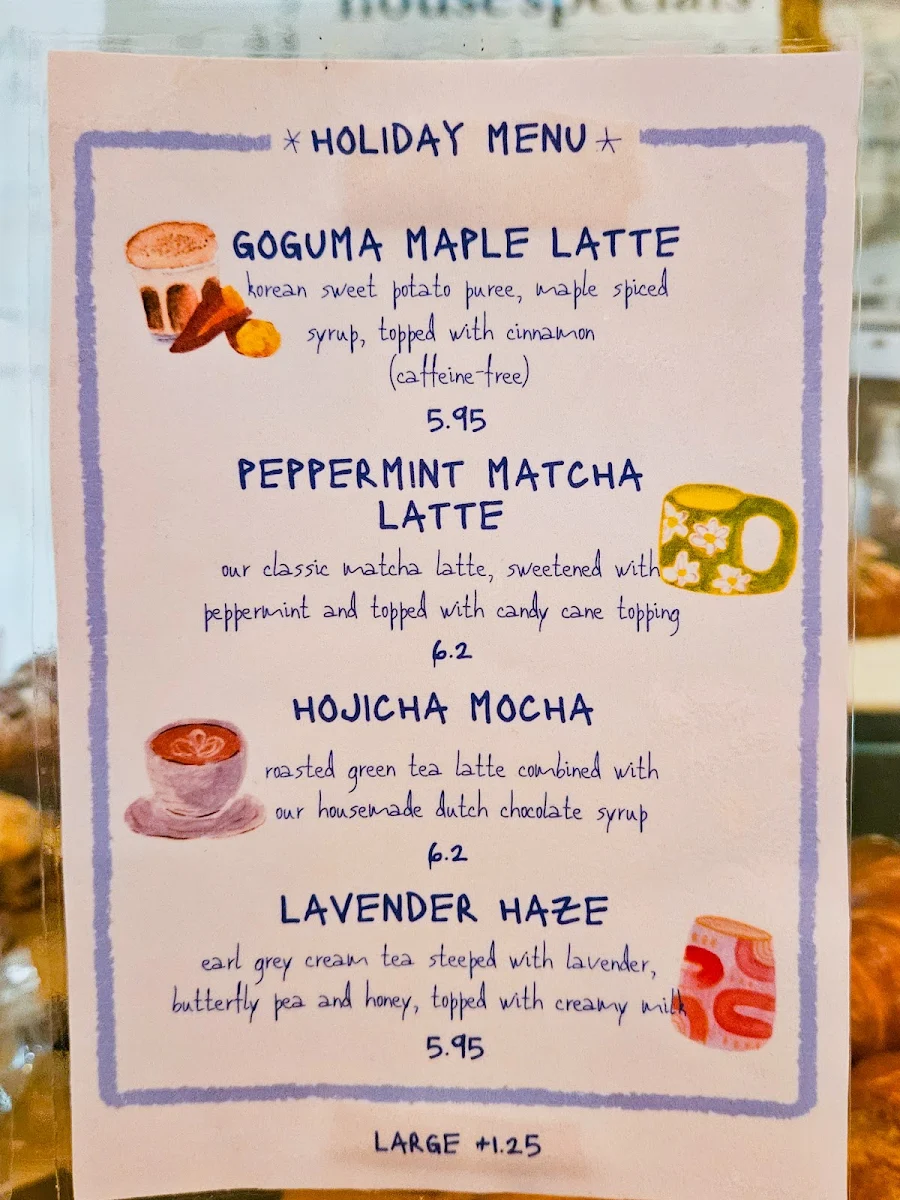 house specials
*HOLIDAY MENU*
GOGUMA MAPLE LATTE
korean sweet potato puree, maple spiced
syrup, topped with cinnamon
(caffeine-free)
5.95
PEPPERMINT MATCHA
LATTE
our classic matcha latte, sweetened with
peppermint and topped with candy cane topping
6.2
HOJICHA MOCHA
roasted green tea latte combined with
our housemade dutch chocolate syrup
6.2
LAVENDER HAZE
earl grey cream tea steeped with lavender,
butterfly pea and honey, topped with creamy milk
5.95
LARGE +1.25